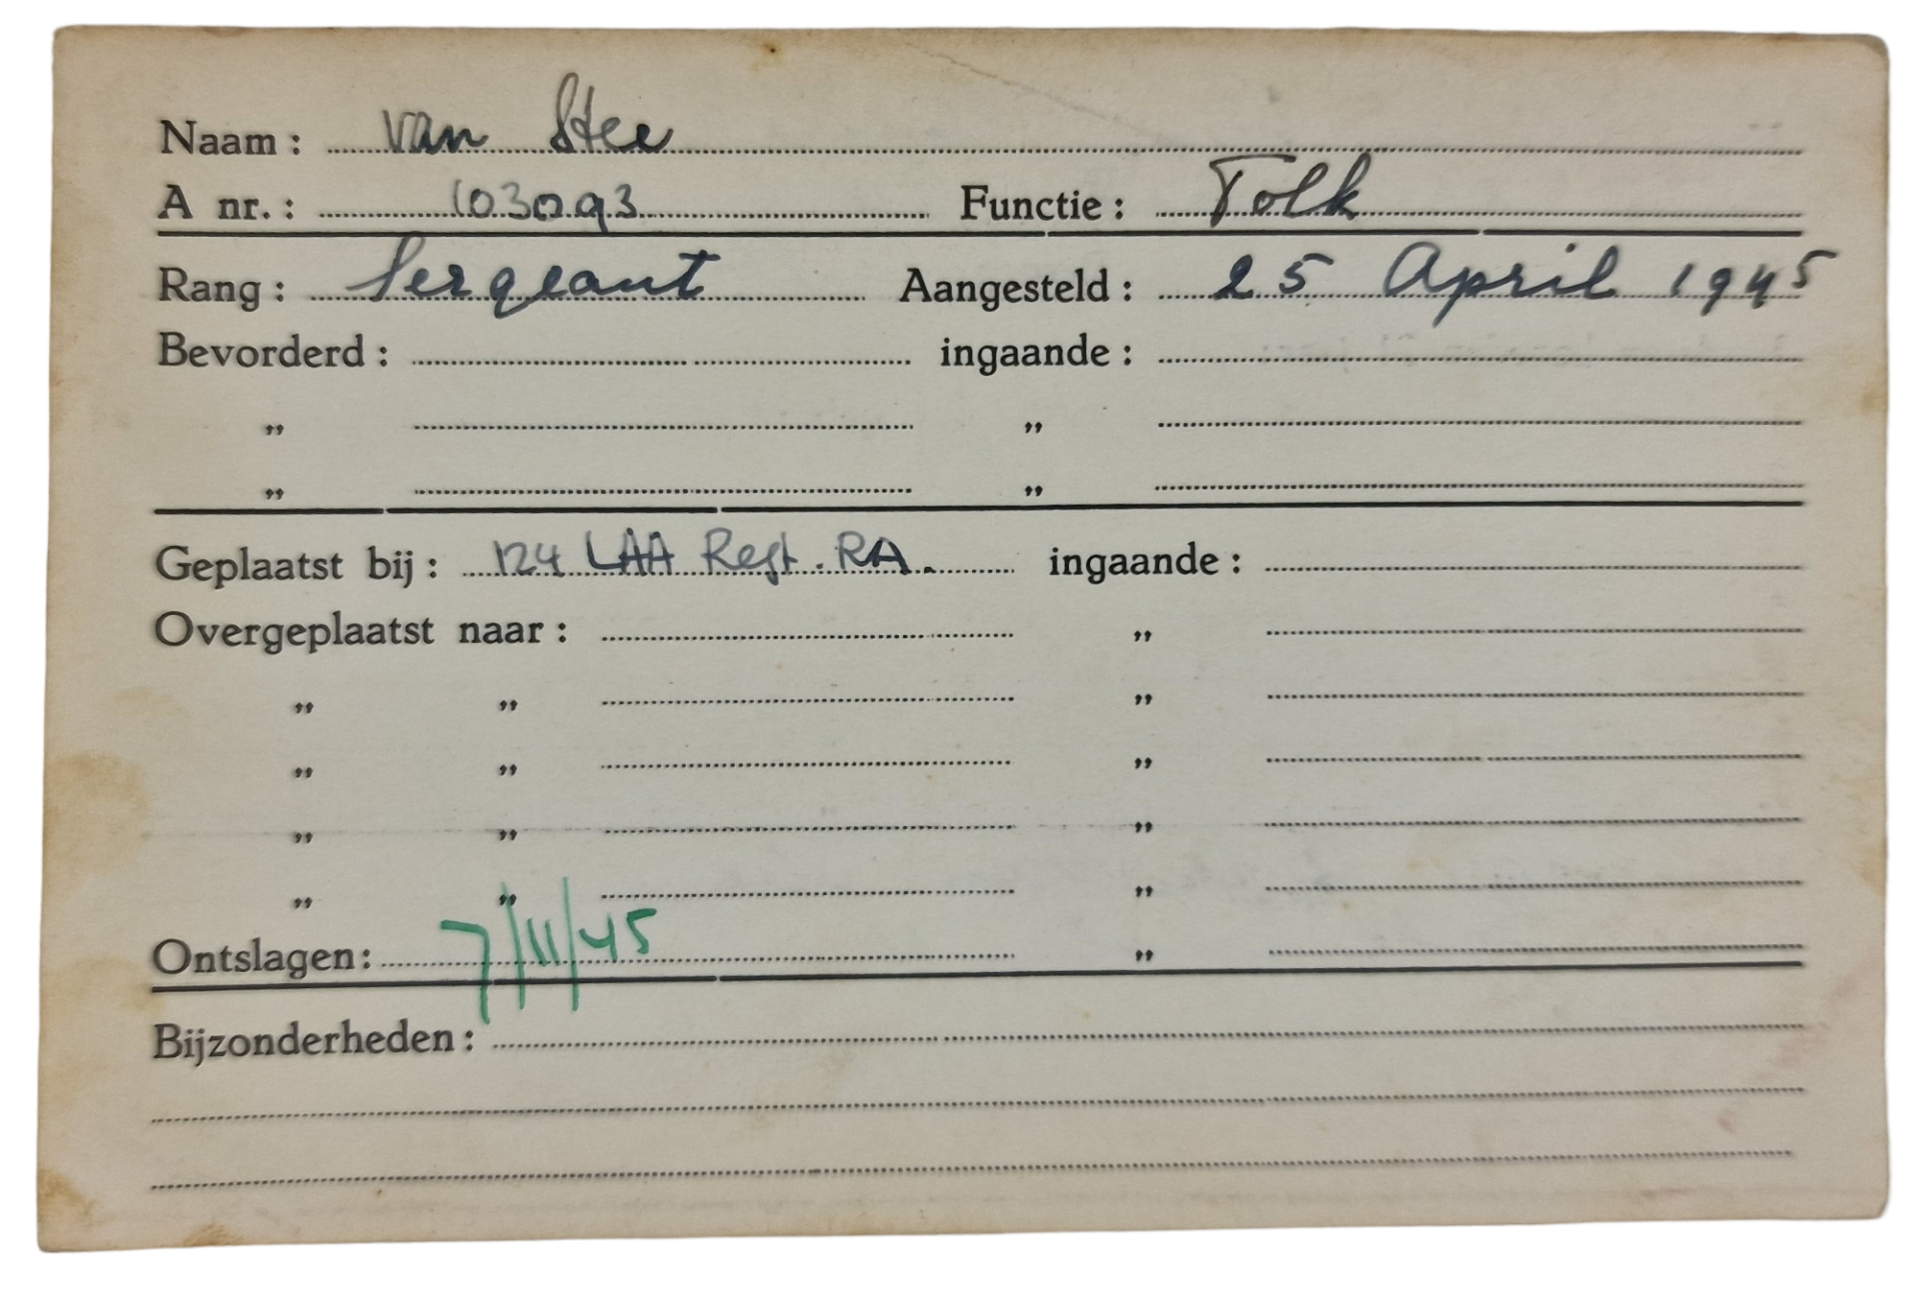 Naam: van Stee
A nr.: 103093 Functie: Tolk
Rang: Sergeant Aangesteld: 25 April 1945
Bevorderd: ingaande:
„ „
„ „
Geplaatst bij: 124 LAA Regt. RA. ingaande:
Overgeplaatst naar: „
„ „ „
„ „ „
„ „ „
„ „ „
Ontslagen: 7/11/45 „
Bijzonderheden: